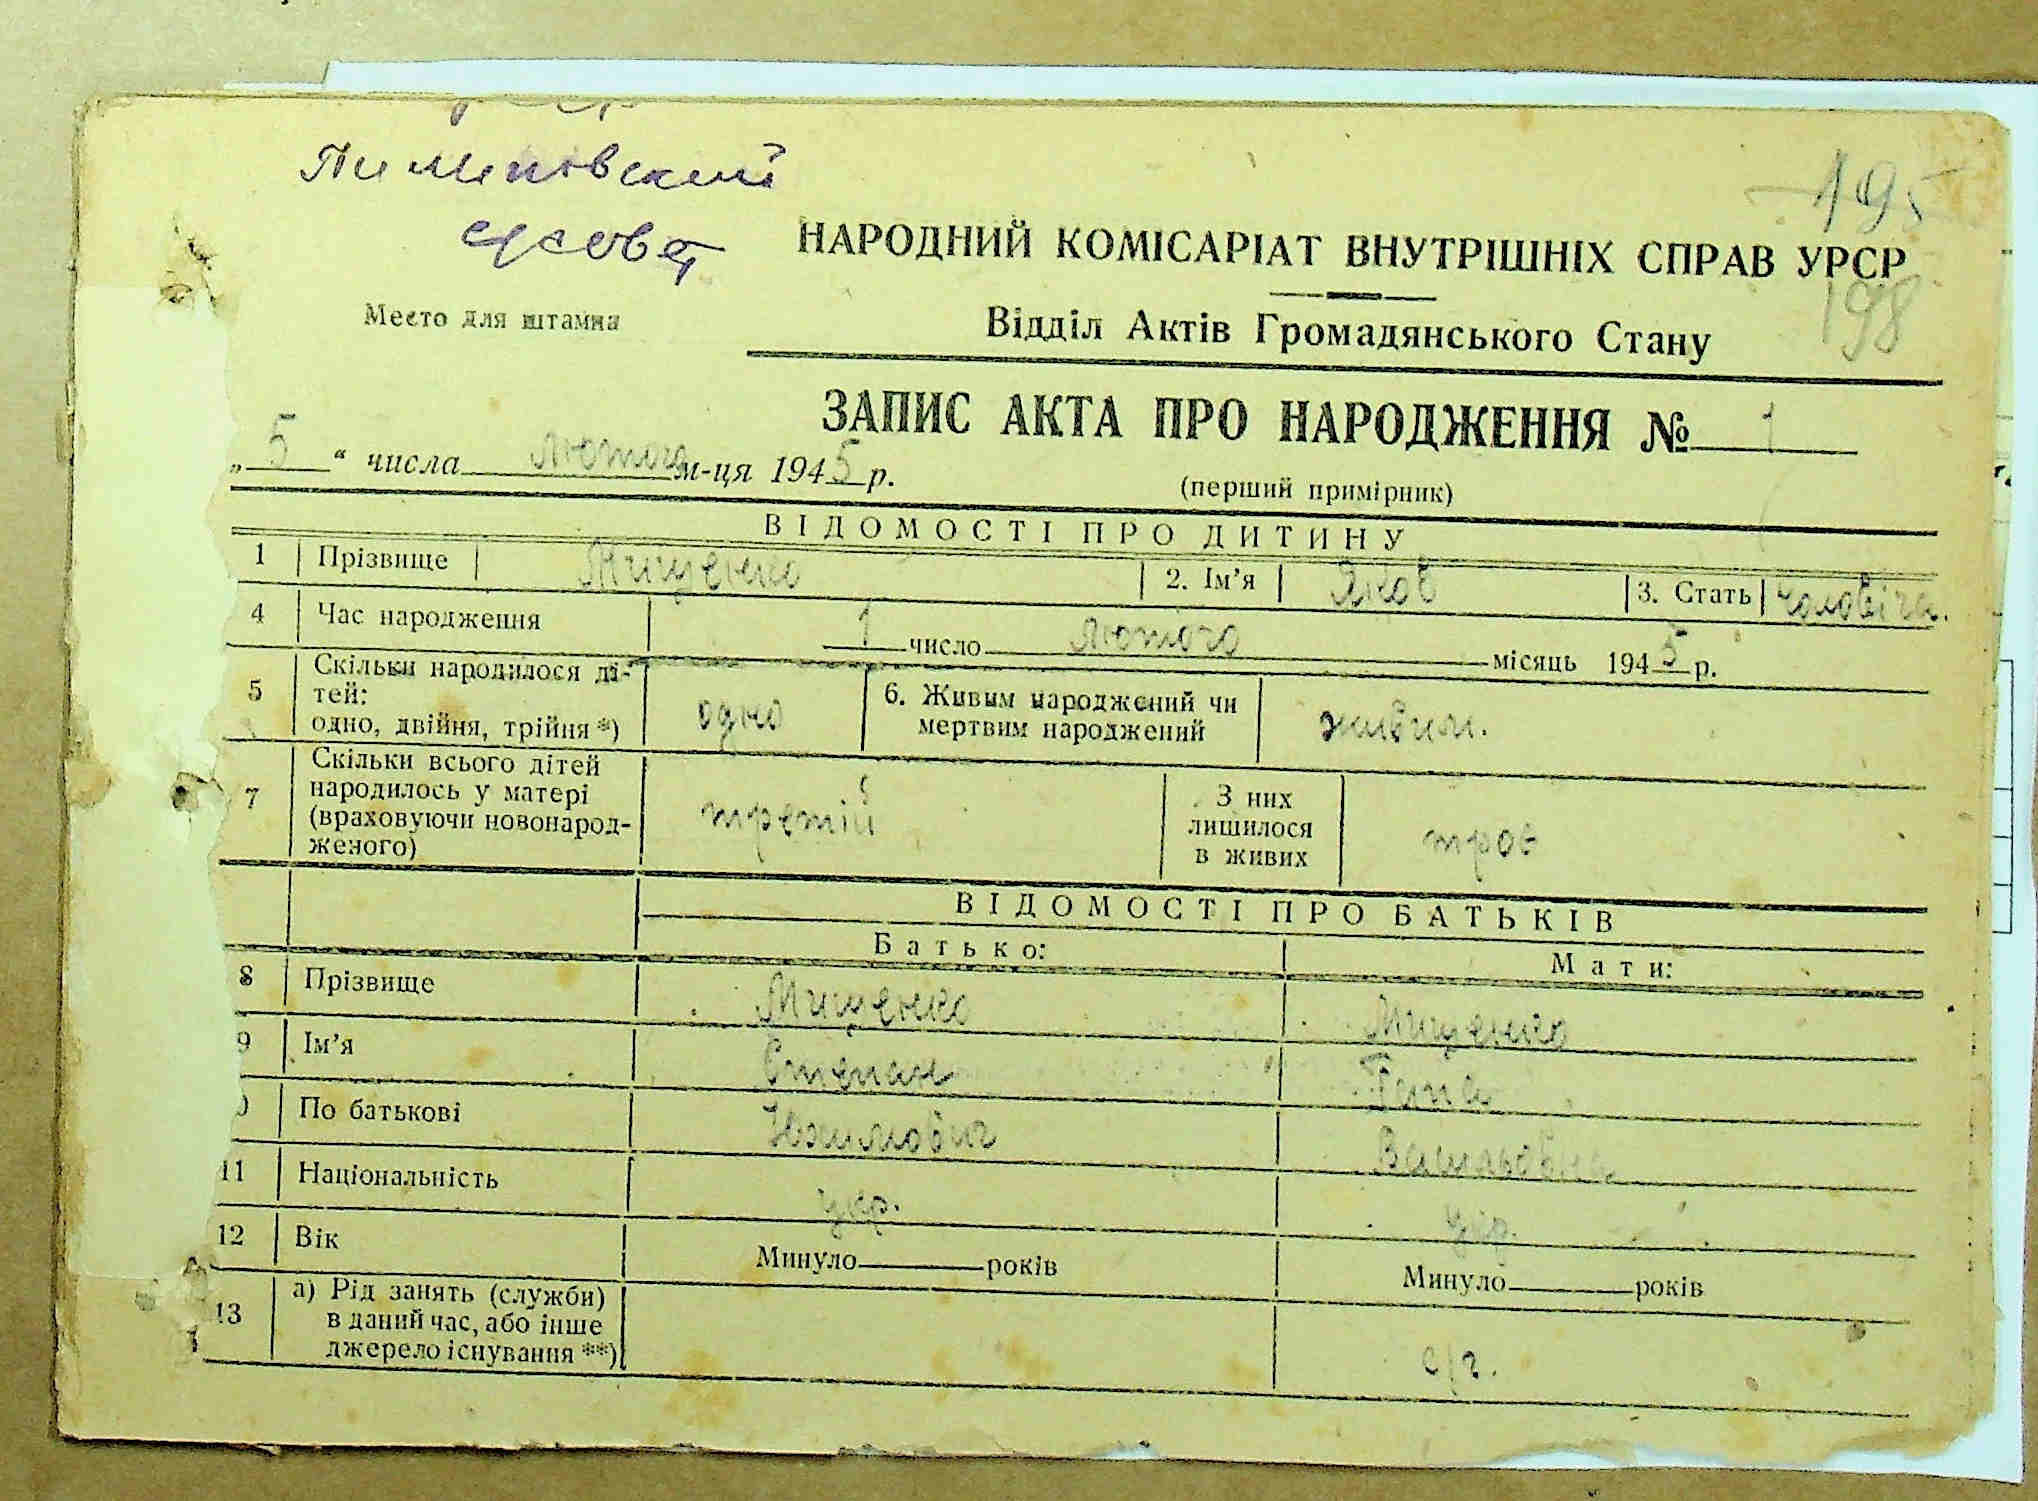 Пилиповский
с/совет
195
НАРОДНИЙ КОМІСАРІАТ ВНУТРІШНІХ СПРАВ УРСР
198
Место для штампа
Відділ Актів Громадянського Стану
ЗАПИС АКТА ПРО НАРОДЖЕННЯ № 1
„ 5 “ числа лютого м-ця 1945 р.
(перший примірник)
ВІДОМОСТІ ПРО ДИТИНУ
1 Прізвище Мищенко 2. Ім’я Яков 3. Стать чоловіча.
4 Час народження 1 число лютого місяць 1945 р.
5 Скільки народилося ді-
тей:
одно, двійня, трійня *) одно 6. Живим народжений чи
мертвим народжений живим.
7 Скільки всього дітей
народилось у матері
(враховуючи новонарод-
женого) третій З них
лишилося
в живих троє
ВІДОМОСТІ ПРО БАТЬКІВ
Батько: Мати:
8 Прізвище Мищенко Мищенко
9 Ім’я Степан Гапа
По батькові Юхимович Васильовна
11 Національність укр. укр.
12 Вік Минуло років Минуло років
13 а) Рід занять (служби)
в даний час, або інше
джерело існування **) с/г.